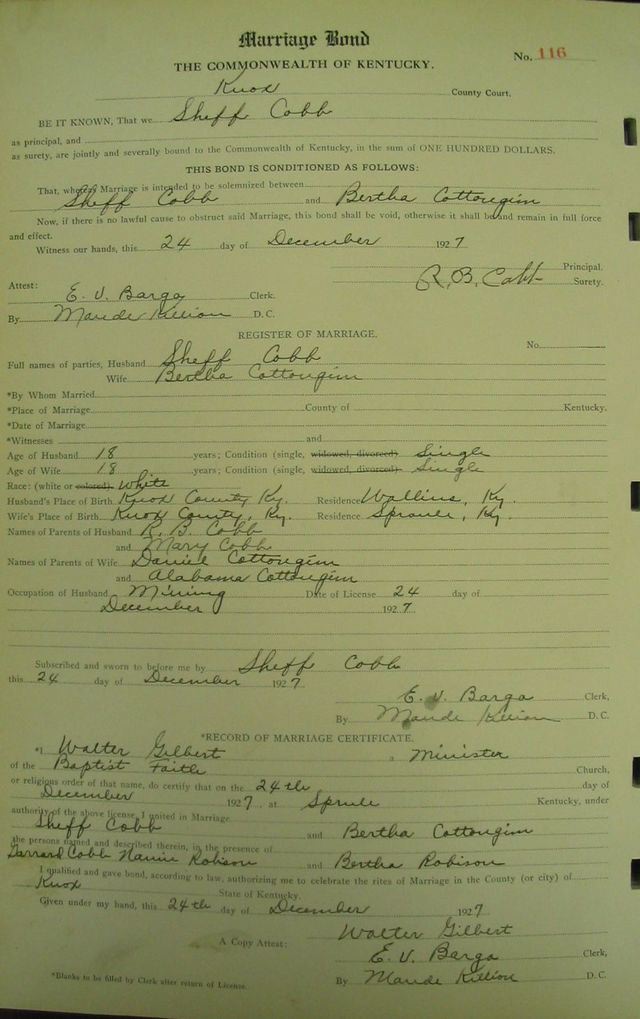 Marriage Bond
No. 116
THE COMMONWEALTH OF KENTUCKY.
Knox County Court,
BE IT KNOWN, That we Sheff Cobb
as principal, and
as surety, are jointly and severally bound to the Commonwealth of Kentucky, in the sum of ONE HUNDRED DOLLARS.
THIS BOND IS CONDITIONED AS FOLLOWS:
That, whereas Marriage is intended to be solemnized between
Sheff Cobb and Bertha Cottongim
Now, if there is no lawful cause to obstruct said Marriage, this bond shall be void, otherwise it shall be and remain in full force
and effect.
Witness our hands, this 24 day of December 1927
Principal.
R. B. Cobb Surety.
Attest:
E. V. Bargo Clerk.
By Maude Killion D. C.
REGISTER OF MARRIAGE.
No.
Full names of parties, Husband Sheff Cobb
Wife Bertha Cottongim
*By Whom Married
*Place of Marriage County of Kentucky.
*Date of Marriage
*Witnesses and
Age of Husband 18 years; Condition (single, widowed, divorced) Single
Age of Wife 18 years; Condition (single, widowed, divorced) Single
Race: (white or colored) White
Husband's Place of Birth Knox County, Ky. Residence Wallins, Ky.
Wife's Place of Birth Knox County, Ky. Residence Sprule, Ky.
Names of Parents of Husband R. B. Cobb
and Mary Cobb
Names of Parents of Wife Daniel Cottongim
and Alabama Cottongim
Occupation of Husband Mining Date of License 24 day of
December 1927
Subscribed and sworn to before me by Sheff Cobb
this 24 day of December 1927
E. V. Bargo Clerk,
By Maude Killion D. C.
*RECORD OF MARRIAGE CERTIFICATE.
*I Walter Gilbert a Minister
of the Baptist Faith Church,
or religious order of that name, do certify that on the 24th day of
December 1927, at Sprule Kentucky, under
authority of the above license, I united in Marriage
Sheff Cobb and Bertha Cottongim
the persons named and described therein, in the presence of
Garrard Cobb Nannie Robison and Bertha Robison
I qualified and gave bond, according to law, authorizing me to celebrate the rites of Marriage in the County (or city) of
Knox State of Kentucky.
Given under my hand, this 24th day of December 1927
Walter Gilbert
A Copy Attest: E. V. Bargo Clerk,
By Maude Killion D. C.
*Blanks to be filled by Clerk after return of License.